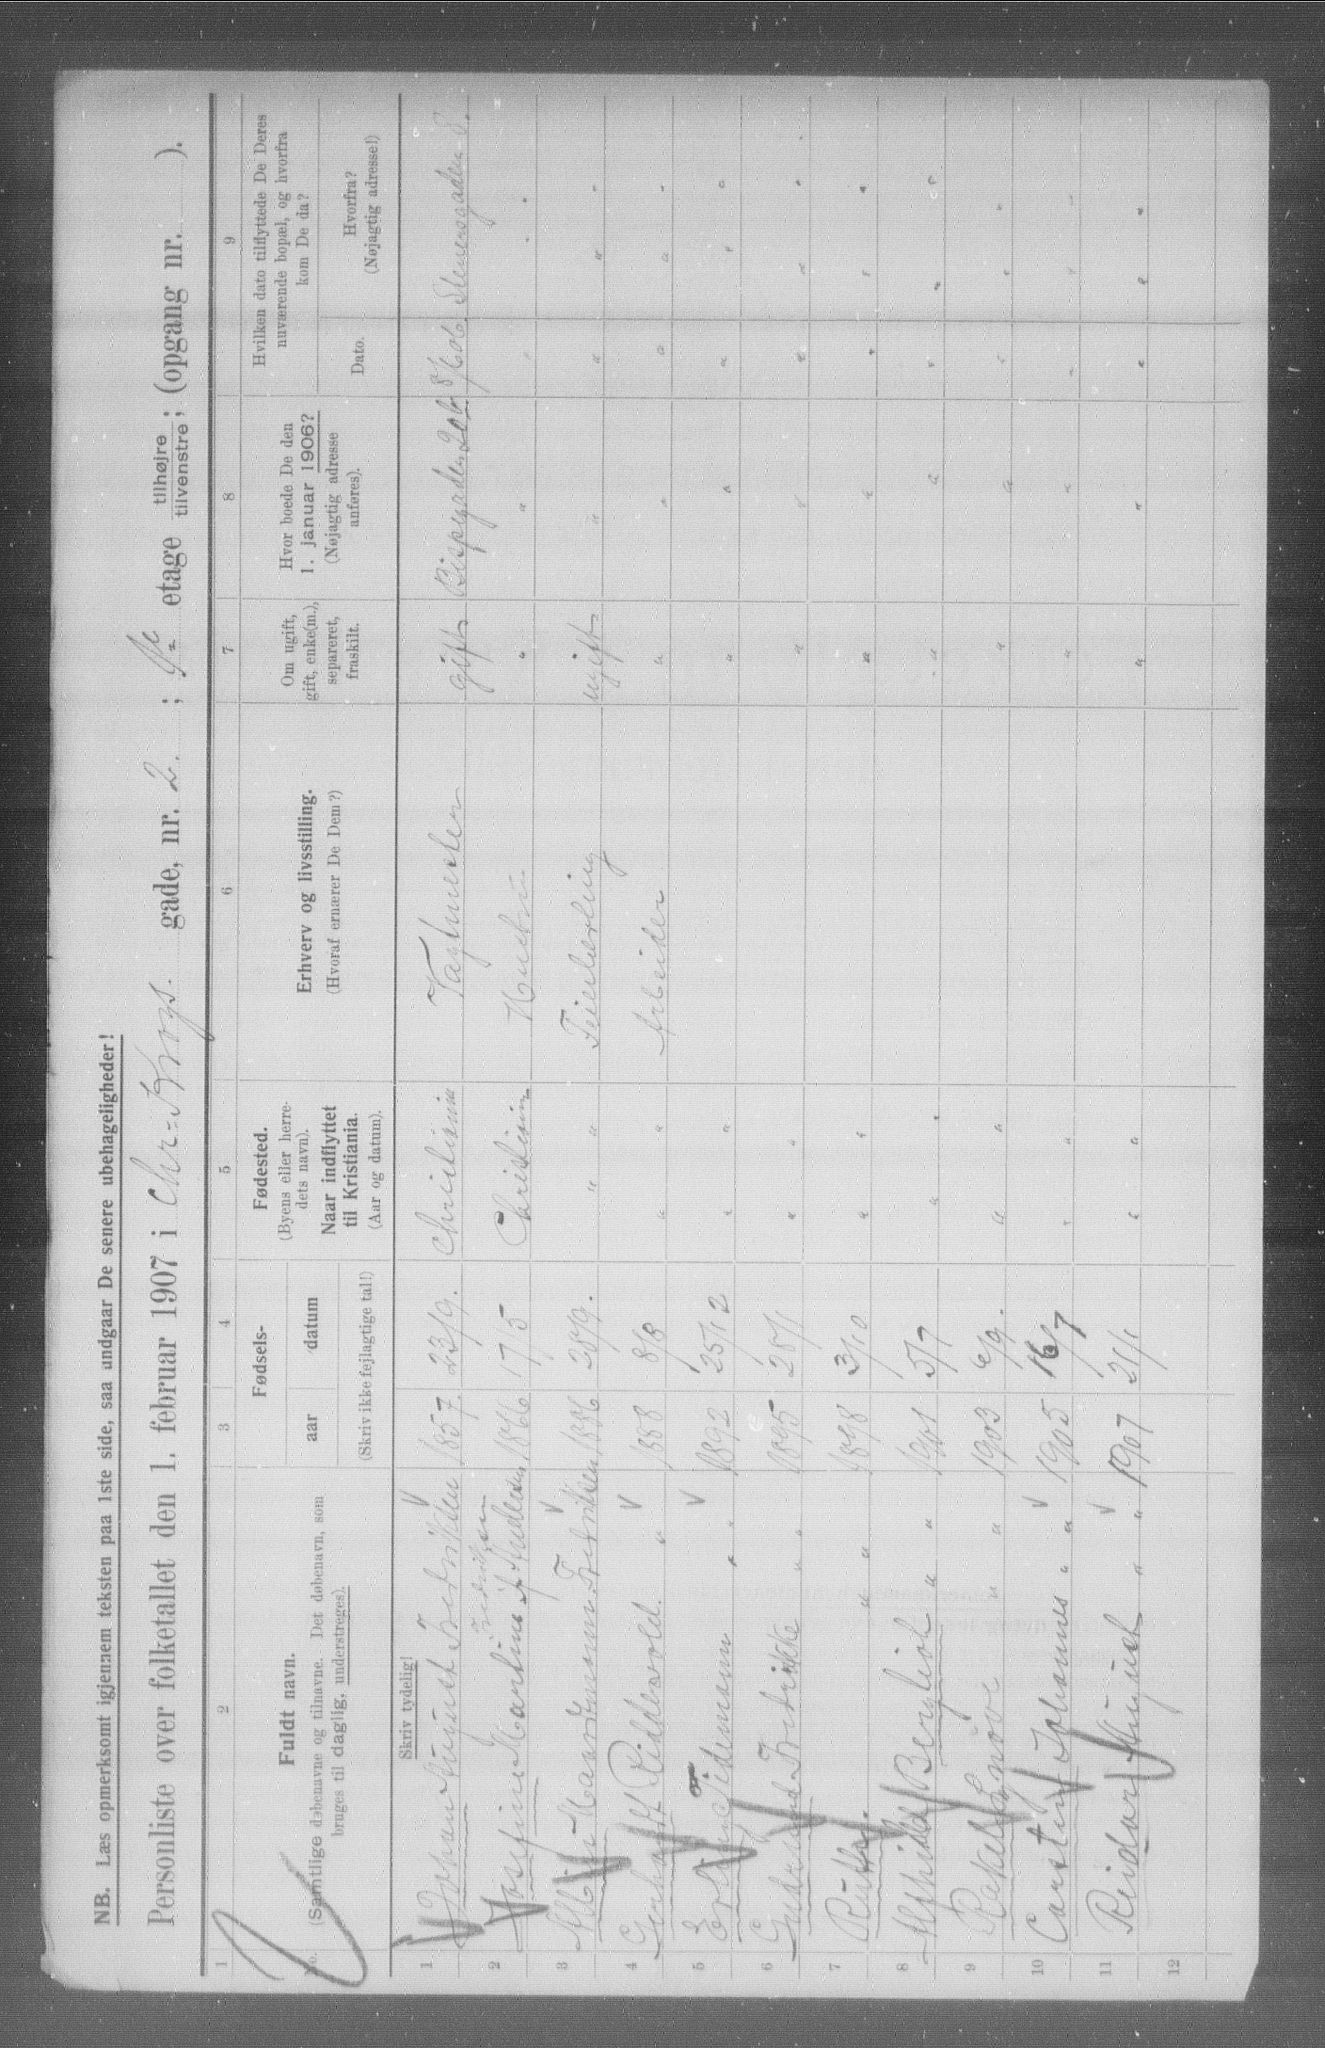 NB. Læs opmerksomt igjennem teksten paa 1ste side, saa undgaar De senere ubehageligheder!
Personliste over folketallet den 1. februar 1907 i Chr. Krogs gade, nr. 2. ; etage tilhøjre tilvenstre ; (opgang nr. ).
1 2 3 4 5 6 7 8 9
No.
Fuldt navn.
(Samtlige døbenavne og tilnavne. Det døbenavn, som
bruges til daglig, understreges).
Fødsels-
aar datum
(Skriv ikke fejlagtige tal!)
Fødested.
(Byens eller herre-
dets navn).
Naar indflyttet
til Kristiania.
(Aar og datum).
Erhverv og livsstilling.
(Hvoraf ernærer De Dem?)
Om ugift,
gift, enke(m.),
separeret,
fraskilt.
Hvor boede De den
1. januar 1906?
(Nøjagtig adresse
anføres).
Hvilken dato tilflyttede De Deres
nuværende bopæl, og hvorfra
kom De da?
Dato.
Hvorfra?
(Nøjagtig adresse!)
Skriv tydelig!
1 Johan August Fredriksen 1857 23/9. Christiania Vagtmester gift Bispegaden 20 b 8/6 06. Stenersgaden 8.
2 Josefine Martine Fredriksen f Andersen 1866 17/5 Christiania Hustru " " " " "
3 Albin 1886 28/9. " " Feierlærling ugift " " " "
4 Gerhard Riddervold " 1888 8/8 " " Arbeider " " " " "
5 Erling Tidemann " " 1892 25/12 " " " " " " "
6 Gudrun Fredrikke " " 1895 28/1 " " " " " " "
7 Ruth. " " 1898 3/10 " " " " " " "
8 Alfhild Bergliot " " 1901 5/7 " " " " " " "
9 Rakel " " 1903 6/9. " " " " " " "
10 Carsten Johannes " " 1905 16/7 " " " " " " "
11 Reidar August " " 1907 21/1 " " " " " " "
12